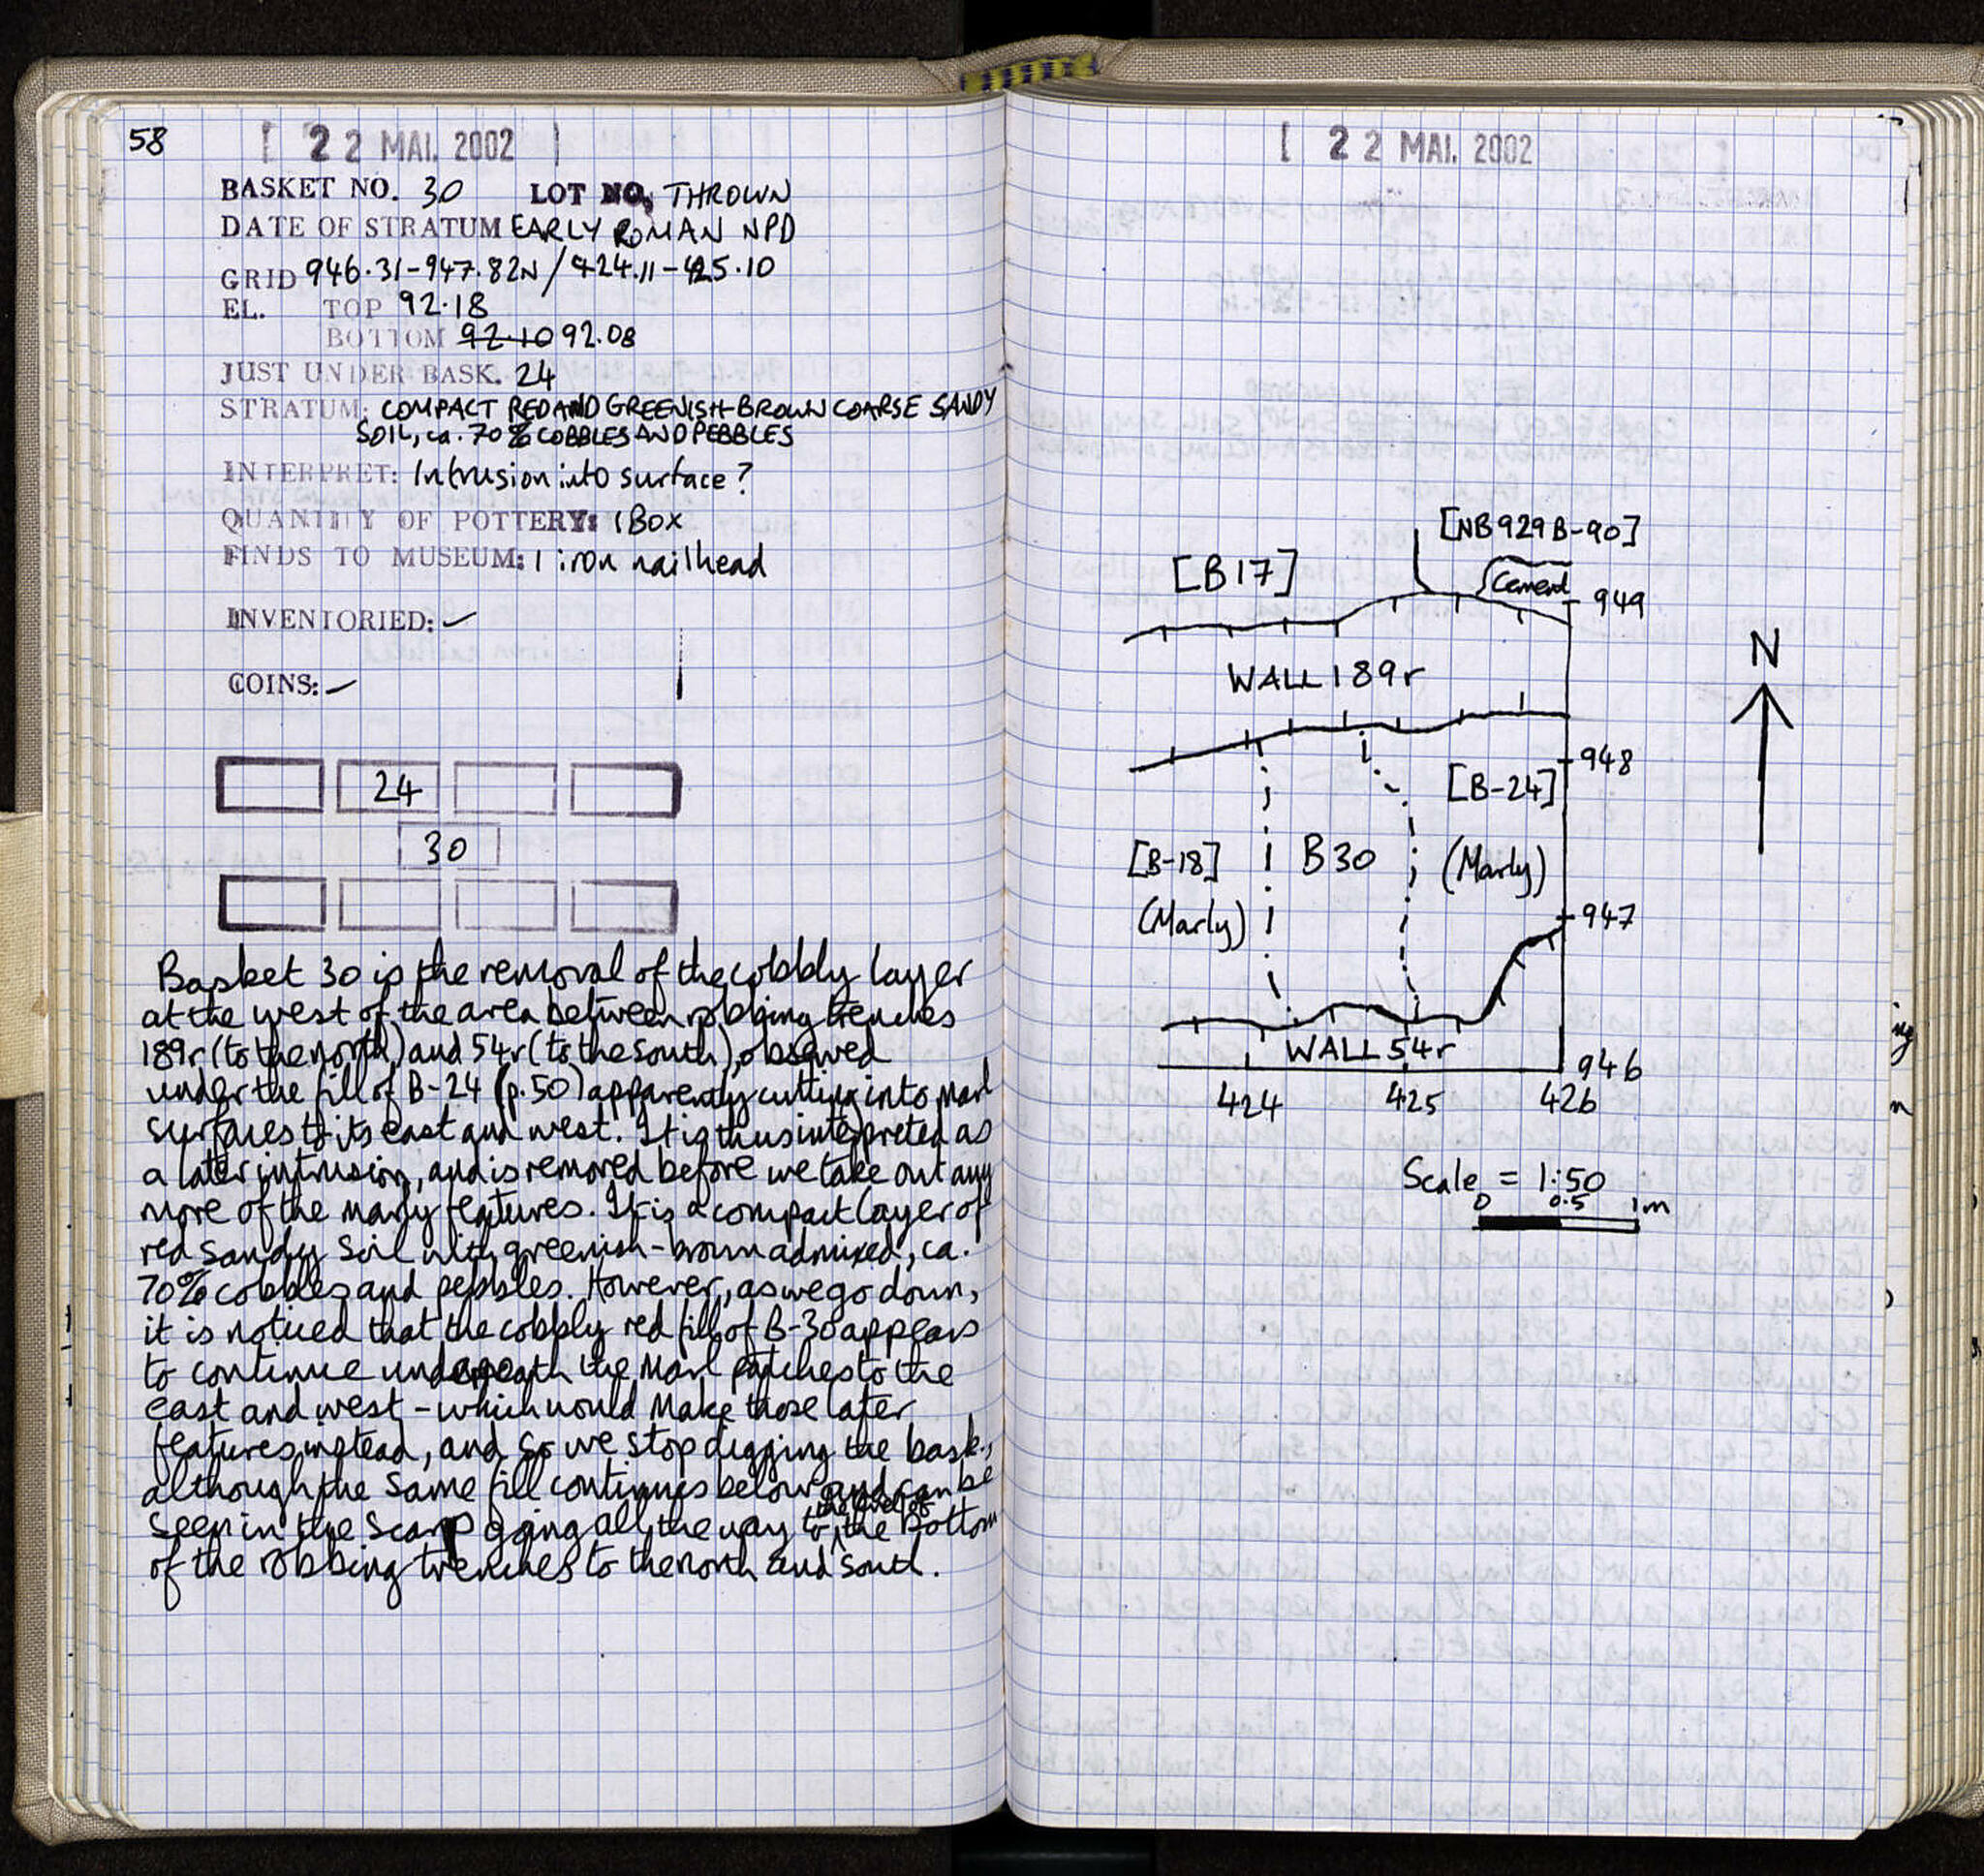 58
22 MAI. 2002
BASKET NO. 30 LOT NO, THROWN
DATE OF STRATUM EARLY ROMAN NPD
GRID 946.31-947.82N / 424.11-425.10
EL. TOP 92.18
BOTTOM 92.10 92.08
JUST UNDER BASK. 24
STRATUM: COMPACT RED AND GREENISH-BROWN COARSE SANDY
SOIL, ca. 70% COBBLES AND PEBBLES
INTERPRET: Intrusion into surface?
QUANTITY OF POTTERY: 1 BOX
FINDS TO MUSEUM: 1 iron nailhead
INVENTORIED: –
COINS: –
24
30
Basket 30 is the removal of the cobbly layer
at the west of the area between robbing trenches
189r (to the north) and 54r (to the south), observed
under the fill of B-24 (p.50) apparently cutting into marl
surfaces to its east and west. It is thus interpreted as
a later intrusion, and is removed before we take out any
more of the marly features. It is a compact layer of
red sandy soil with greenish-brown admixed, ca.
70% cobbles and pebbles. However, as we go down,
it is noticed that the cobbly red fill of B-30 appears
to continue underneath the marl patches to the
east and west - which would make those later
features instead, and so we stop digging the bask.,
although the same fill continues below and can be
seen in the scarp going all the way to the level of the bottom
of the robbing trenches to the north and south.
22 MAI. 2002
[NB929 B-90]
[B17]
Cement
949
WALL 189r
N
948
[B-24]
[B-18]
B30
(Marly)
(Marly)
947
WALL 54r
946
424 425 426
Scale = 1:50
0 0.5 1m